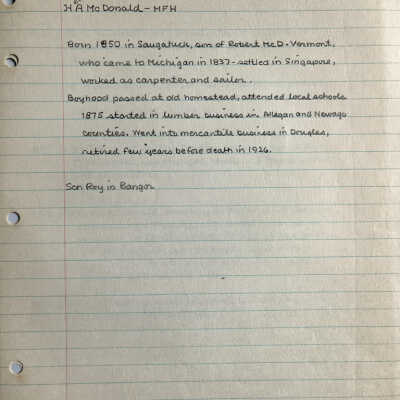 H A McDonald - MFH
Born 1850 in Saugatuck, son of Robert McD - Vermont.
who came to Michigan in 1837 - settled in Singapore,
worked as carpenter and sailor.
Boyhood passed at old homestead, attended local schools
1875 started in lumber business in Allegan and Newago
Counties. Went into mercantile business in Douglas,
retired few years before death in 1926.
Son Roy in Bangor